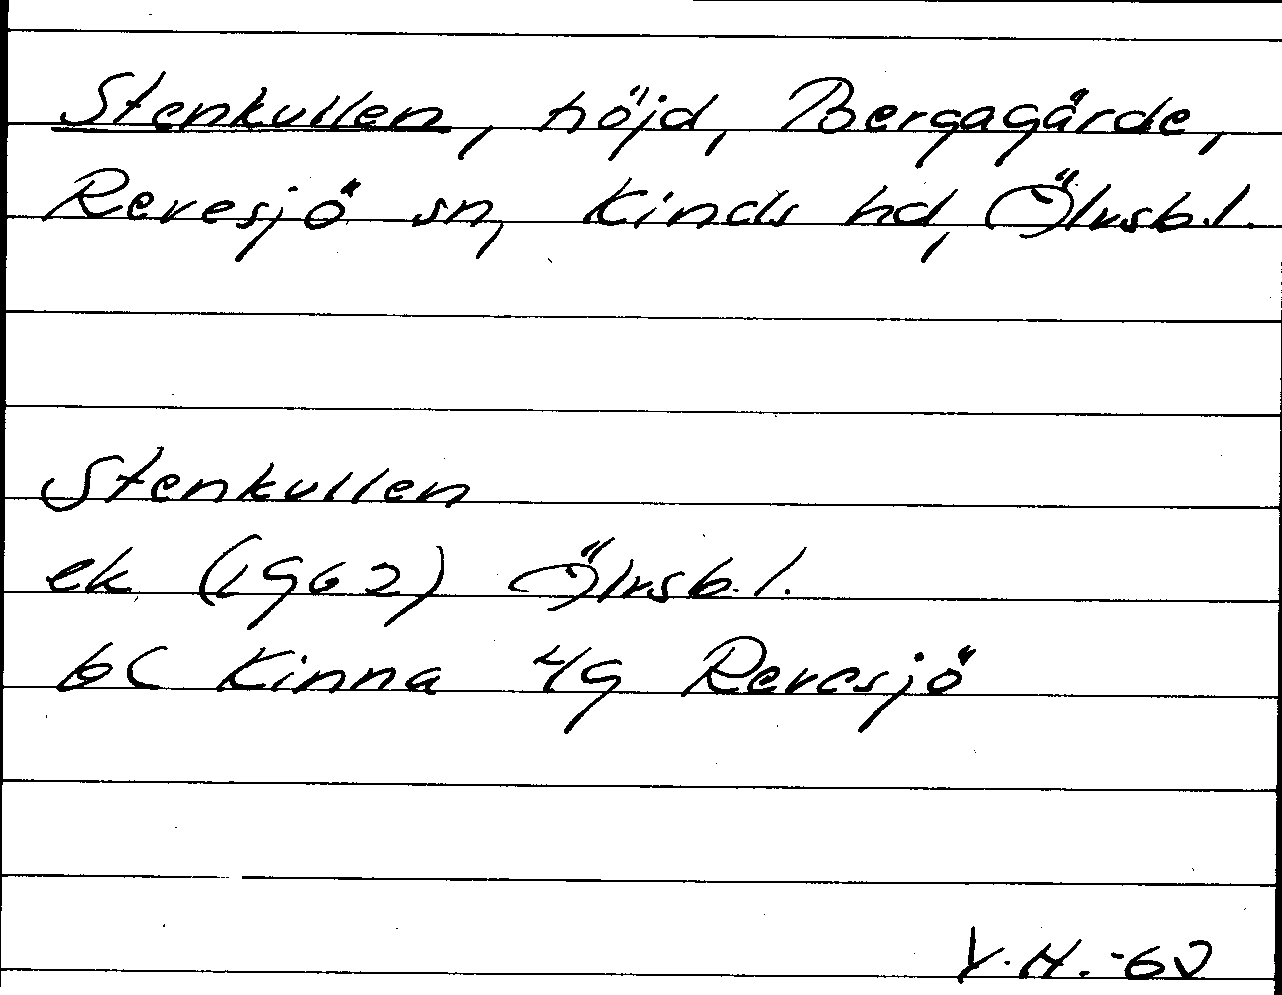 Stenkullen, höjd, Bergagärde,
Revesjö sn, Kinds hd, Älvsb.l.
Stenkullen
ek (1962) Älvsb.l.
6C Kinna 4g Revesjö